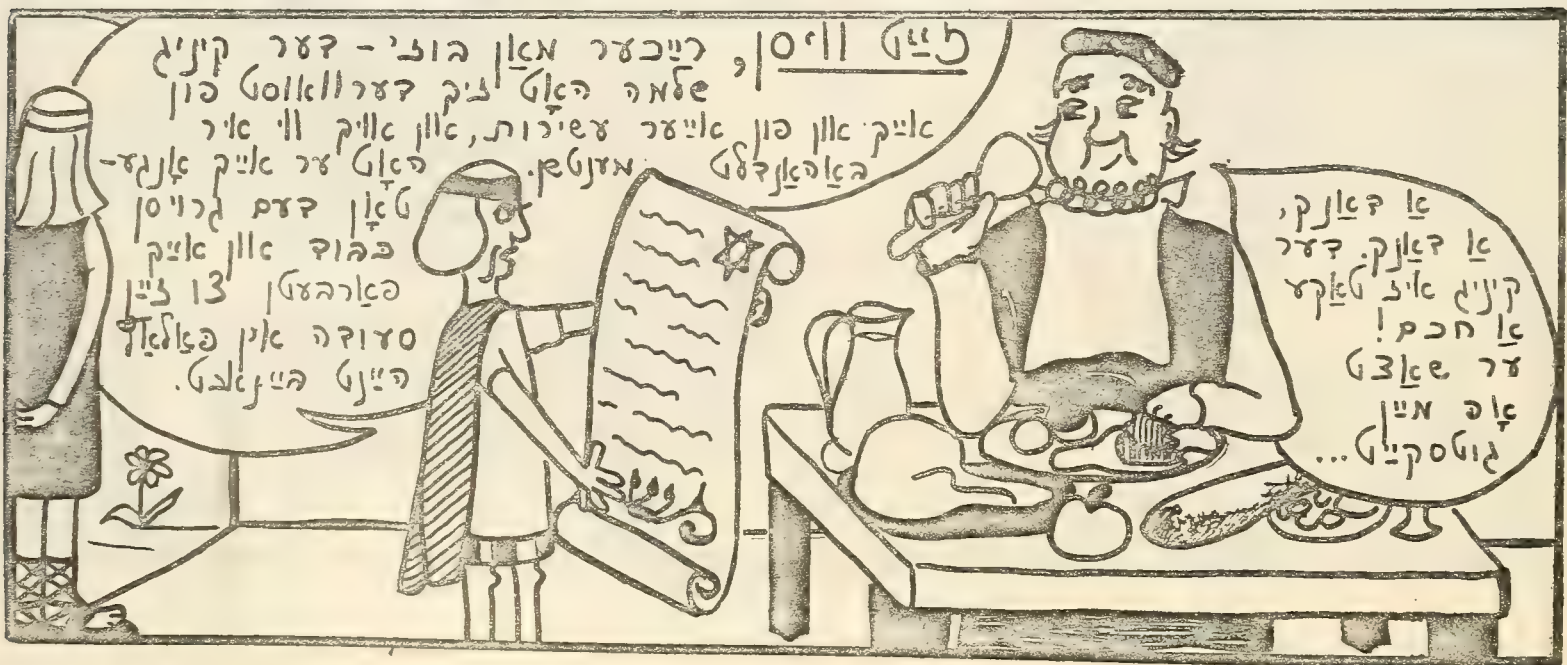 זײַט וויסן, רײַכער מאַן בוזי - דער קיניג
שלמה האָט זיך דערוואוסט פון
אײַך און פון אײַער עשירות, און אויך ווי איר
באַהאַנדלט מענטשן. האָט ער אײַך אָנגע-
טאָן דעם גרויסן
כּבוד און אײַך
פאַרבעטן צו זײַן
סעודה אין פּאַלאַץ
הײַנט בײַנאַכט.
אַ דאַנק,
אַ דאַנק. דער
קיניג איז טאַקע
אַ חכם!
ער שאַצט
אָפּ מײַן
גוטסקײַט...